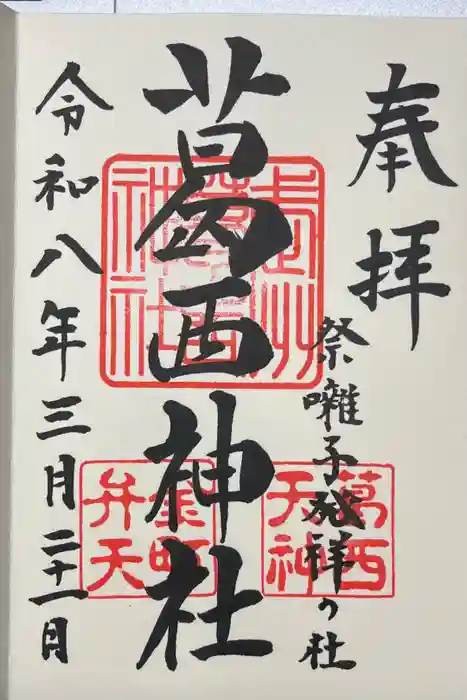 奉拝
祭囃子発祥の社
葛西神社
令和八年三月二十一日
葛西
天神
金町
弁天